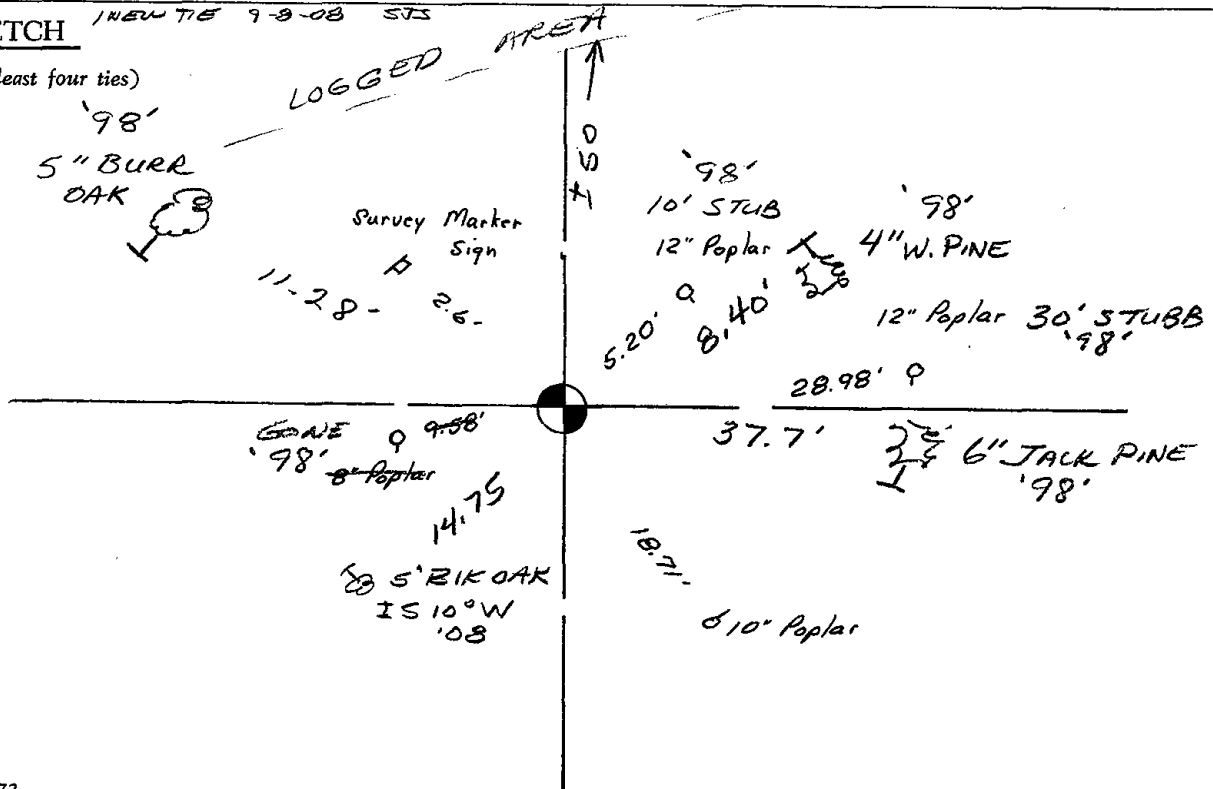 1 NEW TIE 9-8-08 STS
ETCH
least four ties)
LOGGED AREA
± 50
'98'
5" BURR
OAK
Survey Marker
Sign
11.28-
2.6-
'98'
10' STUB
12" Poplar
'98'
4" W. PINE
5.20'
8.40'
12" Poplar 30' STUBB
'98'
28.98'
GONE
'98'
9.58'
8" Poplar
37.7'
6" JACK PINE
'98'
14.75
5" BlK OAK
± S 10° W
'08
18.71-
10" Poplar
72